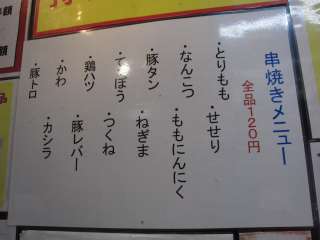 串焼きメニュー
全品120円
・とりもも ・せせり
・なんこつ ・ももにんにく
・豚タン ・ねぎま
・てっぽう ・つくね
・鶏ハツ ・豚レバー
・かわ ・カシラ
・豚トロ